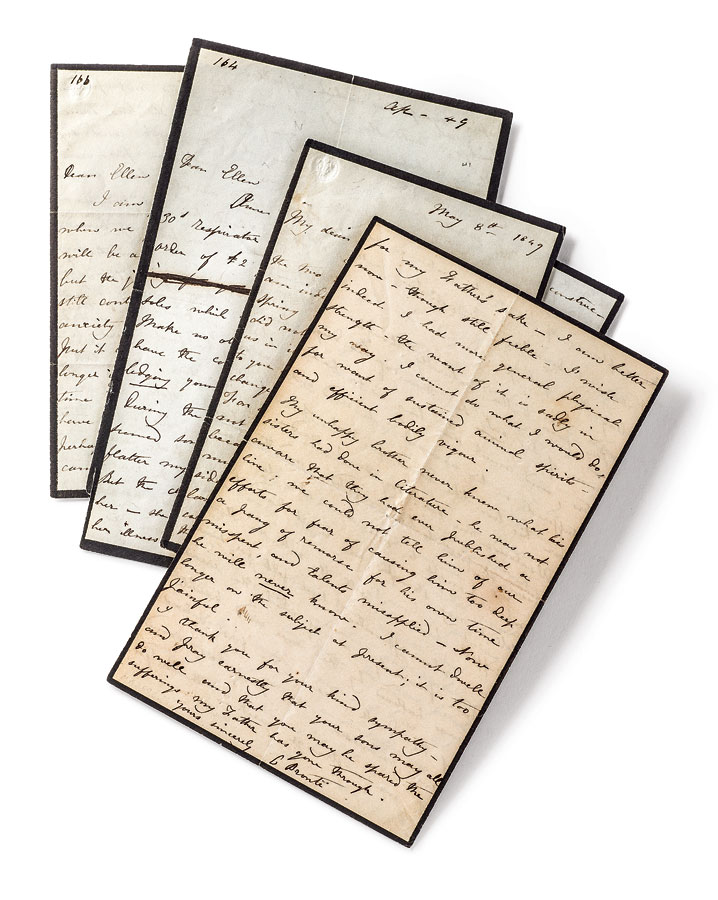 166
Dear Ellen
I am
when we
will be a
but the
still cont
anxiety
Just it
longer
time
have
perhaps
can
164
Ap - 49
Dear Ellen
30s respirator
order of £2
soles which
Make no
have the
lodging your
During the
seemed
flatter my
But the
her - she
her illness
May 8th 1849
My dear
The
am
spring
did not
in
to
change
construe
for my Father's sake - I am better
now - though still feeble - I wish
indeed I had more general physical
strength - the want of it is sadly in
my way. I cannot do what I would do,
for want of sustained animal spirits -
and efficient bodily vigour.
My unhappy brother never knew what his
sisters had done in literature - he was not
aware that they had ever published a
line; we could not tell him of our
efforts for fear of causing him too deep
a pang of remorse for his own time
misspent, and talents misapplied - Now
he will never know. I cannot dwell
longer on the subject at present; it is too
painful.
I thank you for your kind sympathy
and pray earnestly that your sons may all
do well and that you may be spared the
sufferings my Father has gone through.
Yours sincerely
C Brontë